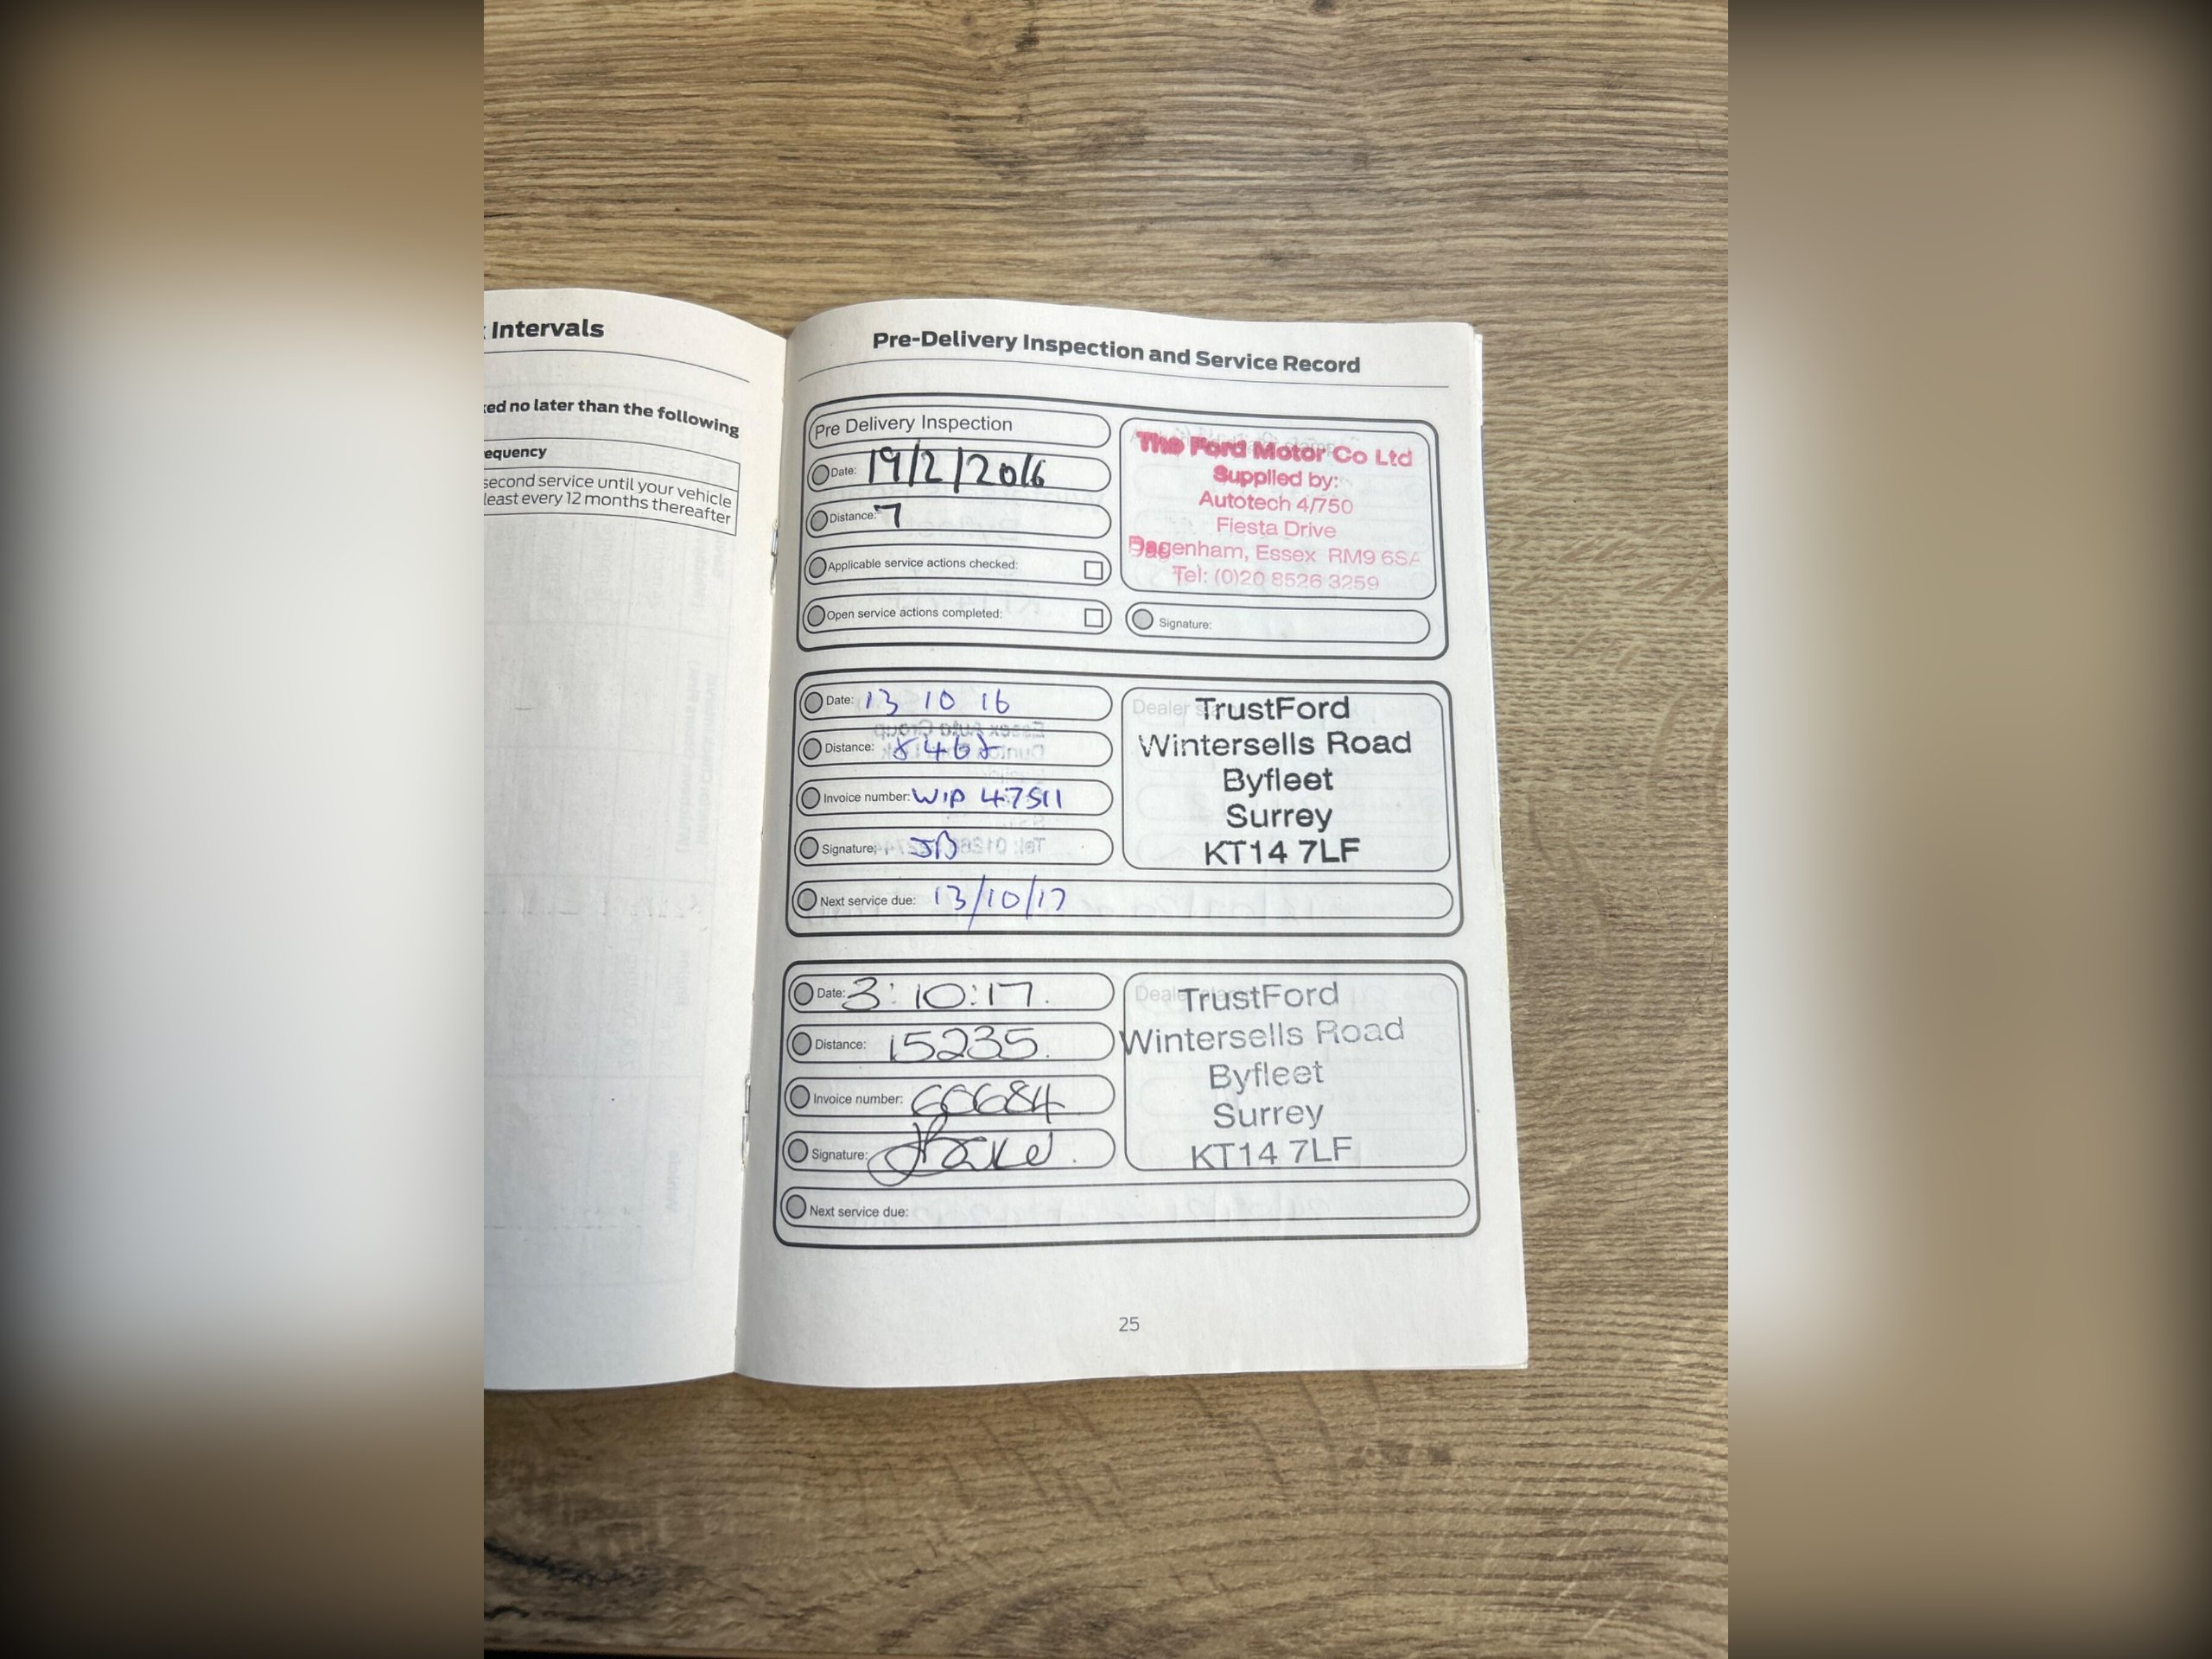 Intervals
ed no later than the following
equency
second service until your vehicle
least every 12 months thereafter
Pre-Delivery Inspection and Service Record
Pre Delivery Inspection
Date: 19/2/2016
Distance: 7
Applicable service actions checked:
Open service actions completed:
The Ford Motor Co Ltd
Supplied by:
Autotech 4/750
Fiesta Drive
Dagenham, Essex RM9 6SA
Tel: (0)20 8526 3259
Signature:
Date: 13 10 16
Distance:
Invoice number: WIP 47511
Signature: JB
Next service due: 13/10/17
Dealer
TrustFord
Wintersells Road
Byfleet
Surrey
KT14 7LF
Date: 3:10:17.
Distance: 15235.
Invoice number: 60684
Signature:
Next service due:
Deal
TrustFord
Wintersells Road
Byfleet
Surrey
KT14 7LF
25